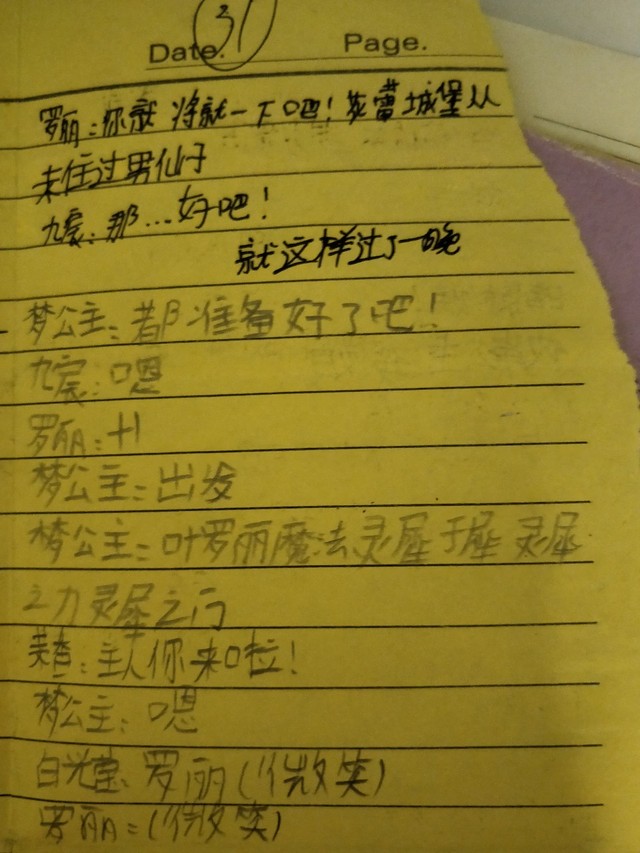 31
Date. Page.
罗丽：你就将就一下吧！蕾城堡从
未住过男仙子
九宸：那…好吧！
就这样过了一晚
梦公主：都准备好了吧！
九宸：嗯
罗丽：+1
梦公主：出发
梦公主：叶罗丽魔法灵犀于犀灵犀
之力灵犀之门
主人你来啦！
梦公主：嗯
白光莹：罗丽（微笑）
罗丽：（微笑）